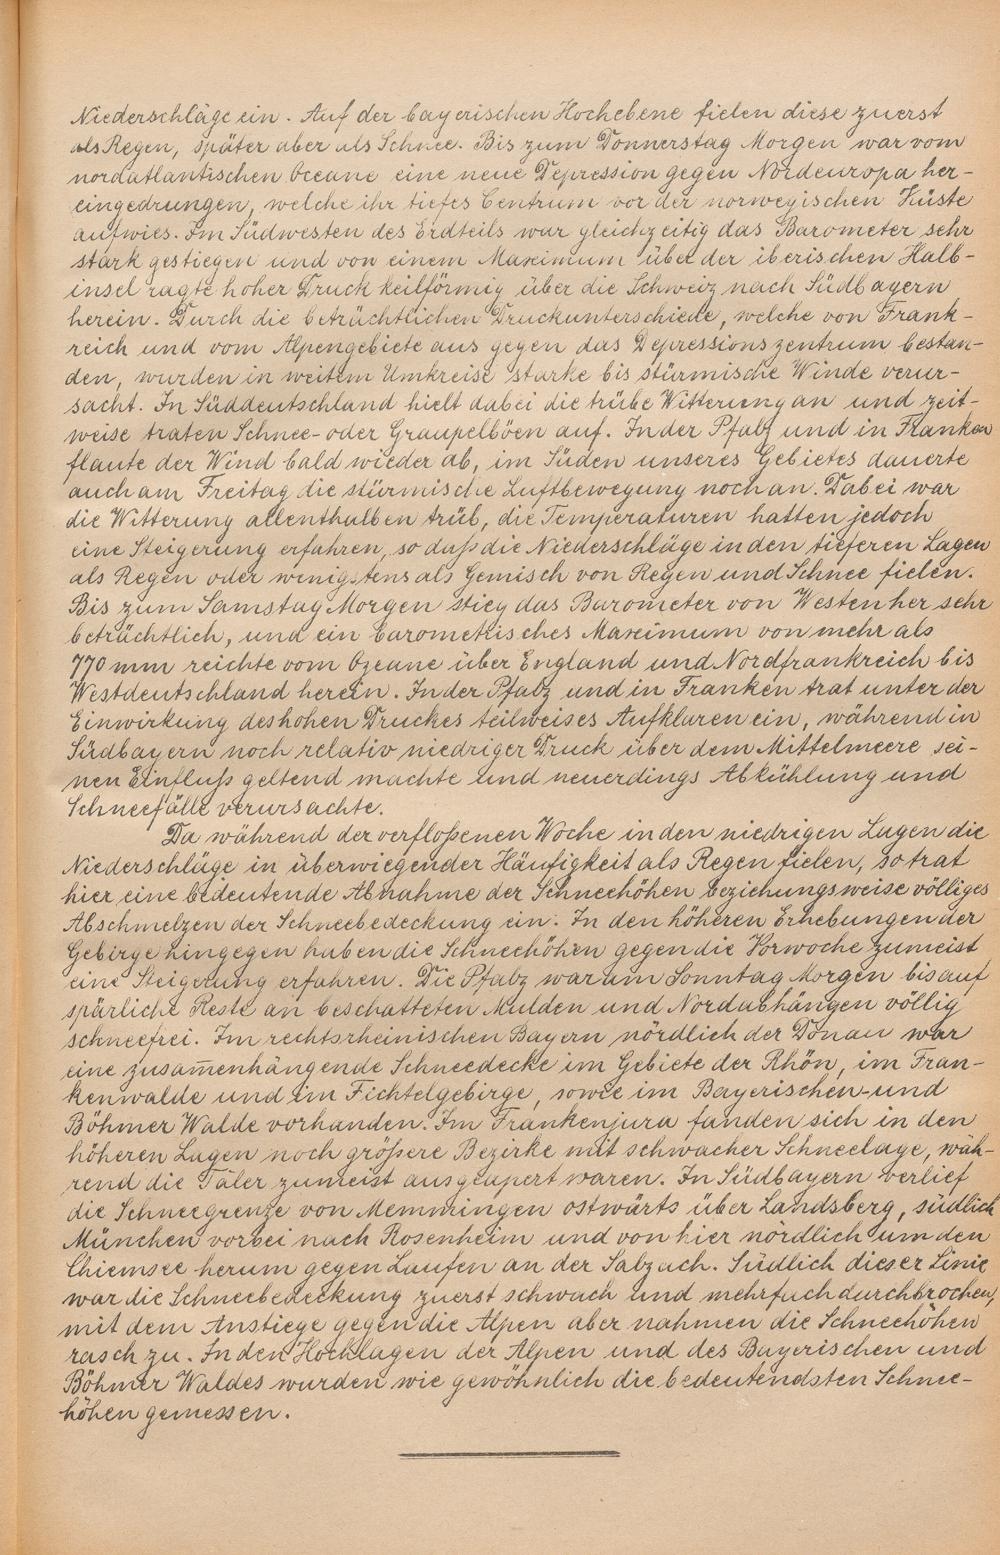 Niederschläge ein. Auf der bayerischen Hochebene fielen diese zuerst
als Regen, später aber als Schnee. Bis zum Donnerstag Morgen war vom
nordatlantischen Oceane eine neue Depression gegen Nordeuropa her-
eingedrungen, welche ihr tiefes Centrum vor der norwegischen Küste
aufwies. Im Südwesten des Erdteils war gleichzeitig das Barometer sehr
stark gestiegen und von einem Maximum über der iberischen Halb-
insel ragte hoher Druck keilförmig über die Schweiz nach Südbayern
herein. Durch die beträchtlichen Druckunterschiede, welche von Frank-
reich und vom Alpengebiete aus gegen das Depressionszentrum bestan-
den, wurden in weitem Umkreise starke bis stürmische Winde verur-
sacht. In Süddeutschland hielt dabei die trübe Witterung an und zeit-
weise traten Schnee- oder Graupelböen auf. In der Pfalz und in Franken
flaute der Wind bald wieder ab, im Süden unseres Gebietes dauerte
auch am Freitag die stürmische Luftbewegung noch an. Dabei war
die Witterung allenthalben trüb, die Temperaturen hatten jedoch
eine Steigerung erfahren, so daß die Niederschläge in den tieferen Lagen
als Regen oder wenigstens als Gemisch von Regen und Schnee fielen.
Bis zum Samstag Morgen stieg das Barometer von Westen her sehr
beträchtlich, und ein barometrisches Maximum von mehr als
770 mm reichte vom Ozeane über England und Nordfrankreich bis
Westdeutschland herein. In der Pfalz und in Franken trat unter der
Einwirkung des hohen Druckes teilweises Aufklaren ein, während in
Südbayern noch relativ niedriger Druck über dem Mittelmeere sei-
nen Einfluß geltend machte und neuerdings Abkühlung und
Schneefälle verursachte.
Da während der verfloßenen Woche in den niedrigen Lagen die
Niederschläge in überwiegender Häufigkeit als Regen fielen, so trat
hier eine bedeutende Abnahme der Schneehöhen beziehungsweise völliges
Abschmelzen der Schneebedeckung ein. In den höheren Erhebungen der
Gebirge hingegen haben die Schneehöhen gegen die Vorwoche zumeist
eine Steigerung erfahren. Die Pfalz war am Sonntag Morgen bis auf
spärliche Reste an beschatteten Mulden und Nordabhängen völlig
schneefrei. Im rechtsrheinischen Bayern nördlich der Donau war
eine zusam̅enhängende Schneedecke im Gebiete der Rhön, im Fran-
kenwalde und im Fichtelgebirge, sowie im Bayerischen- und
Böhmer Walde vorhanden. Im Frankenjura fanden sich in den
höheren Lagen noch größere Bezirke mit schwacher Schneelage, wäh-
rend die Täler zumeist ausgeapert waren. In Südbayern verlief
die Schneegrenze von Memmingen ostwärts über Landsberg, südlich
München vorbei nach Rosenheim und von hier nördlich um den
Chiemsee herum gegen Laufen an der Salzach. Südlich dieser Linie
war die Schneebedeckung zuerst schwach und mehrfach durchbrochen,
mit dem Anstiege gegen die Alpen aber nahmen die Schneehöhen
rasch zu. In den Hochlagen der Alpen und des Bayerischen und
Böhmer Waldes wurden wie gewöhnlich die bedeutendsten Schnee-
höhen gemessen.